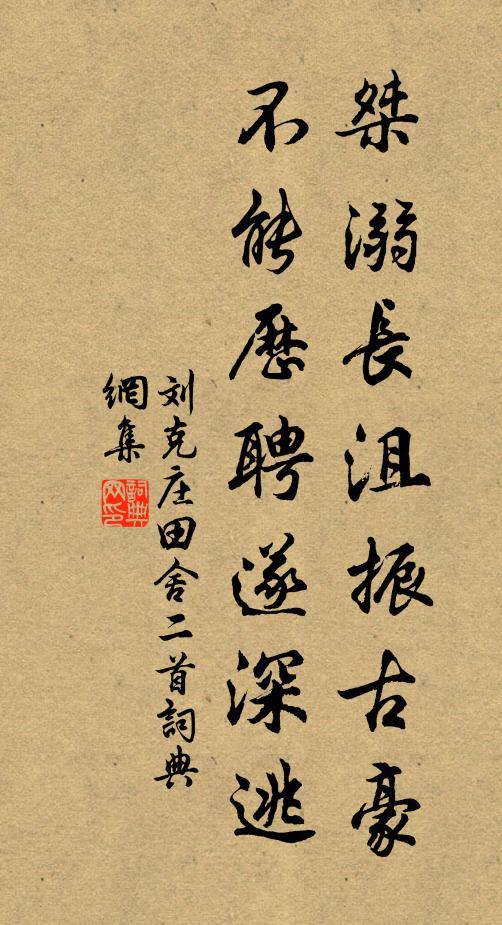 桀溺長沮振古豪
不能歷聘遂深逃
刘克庄田舍二首詞典
網集
詞典
网印